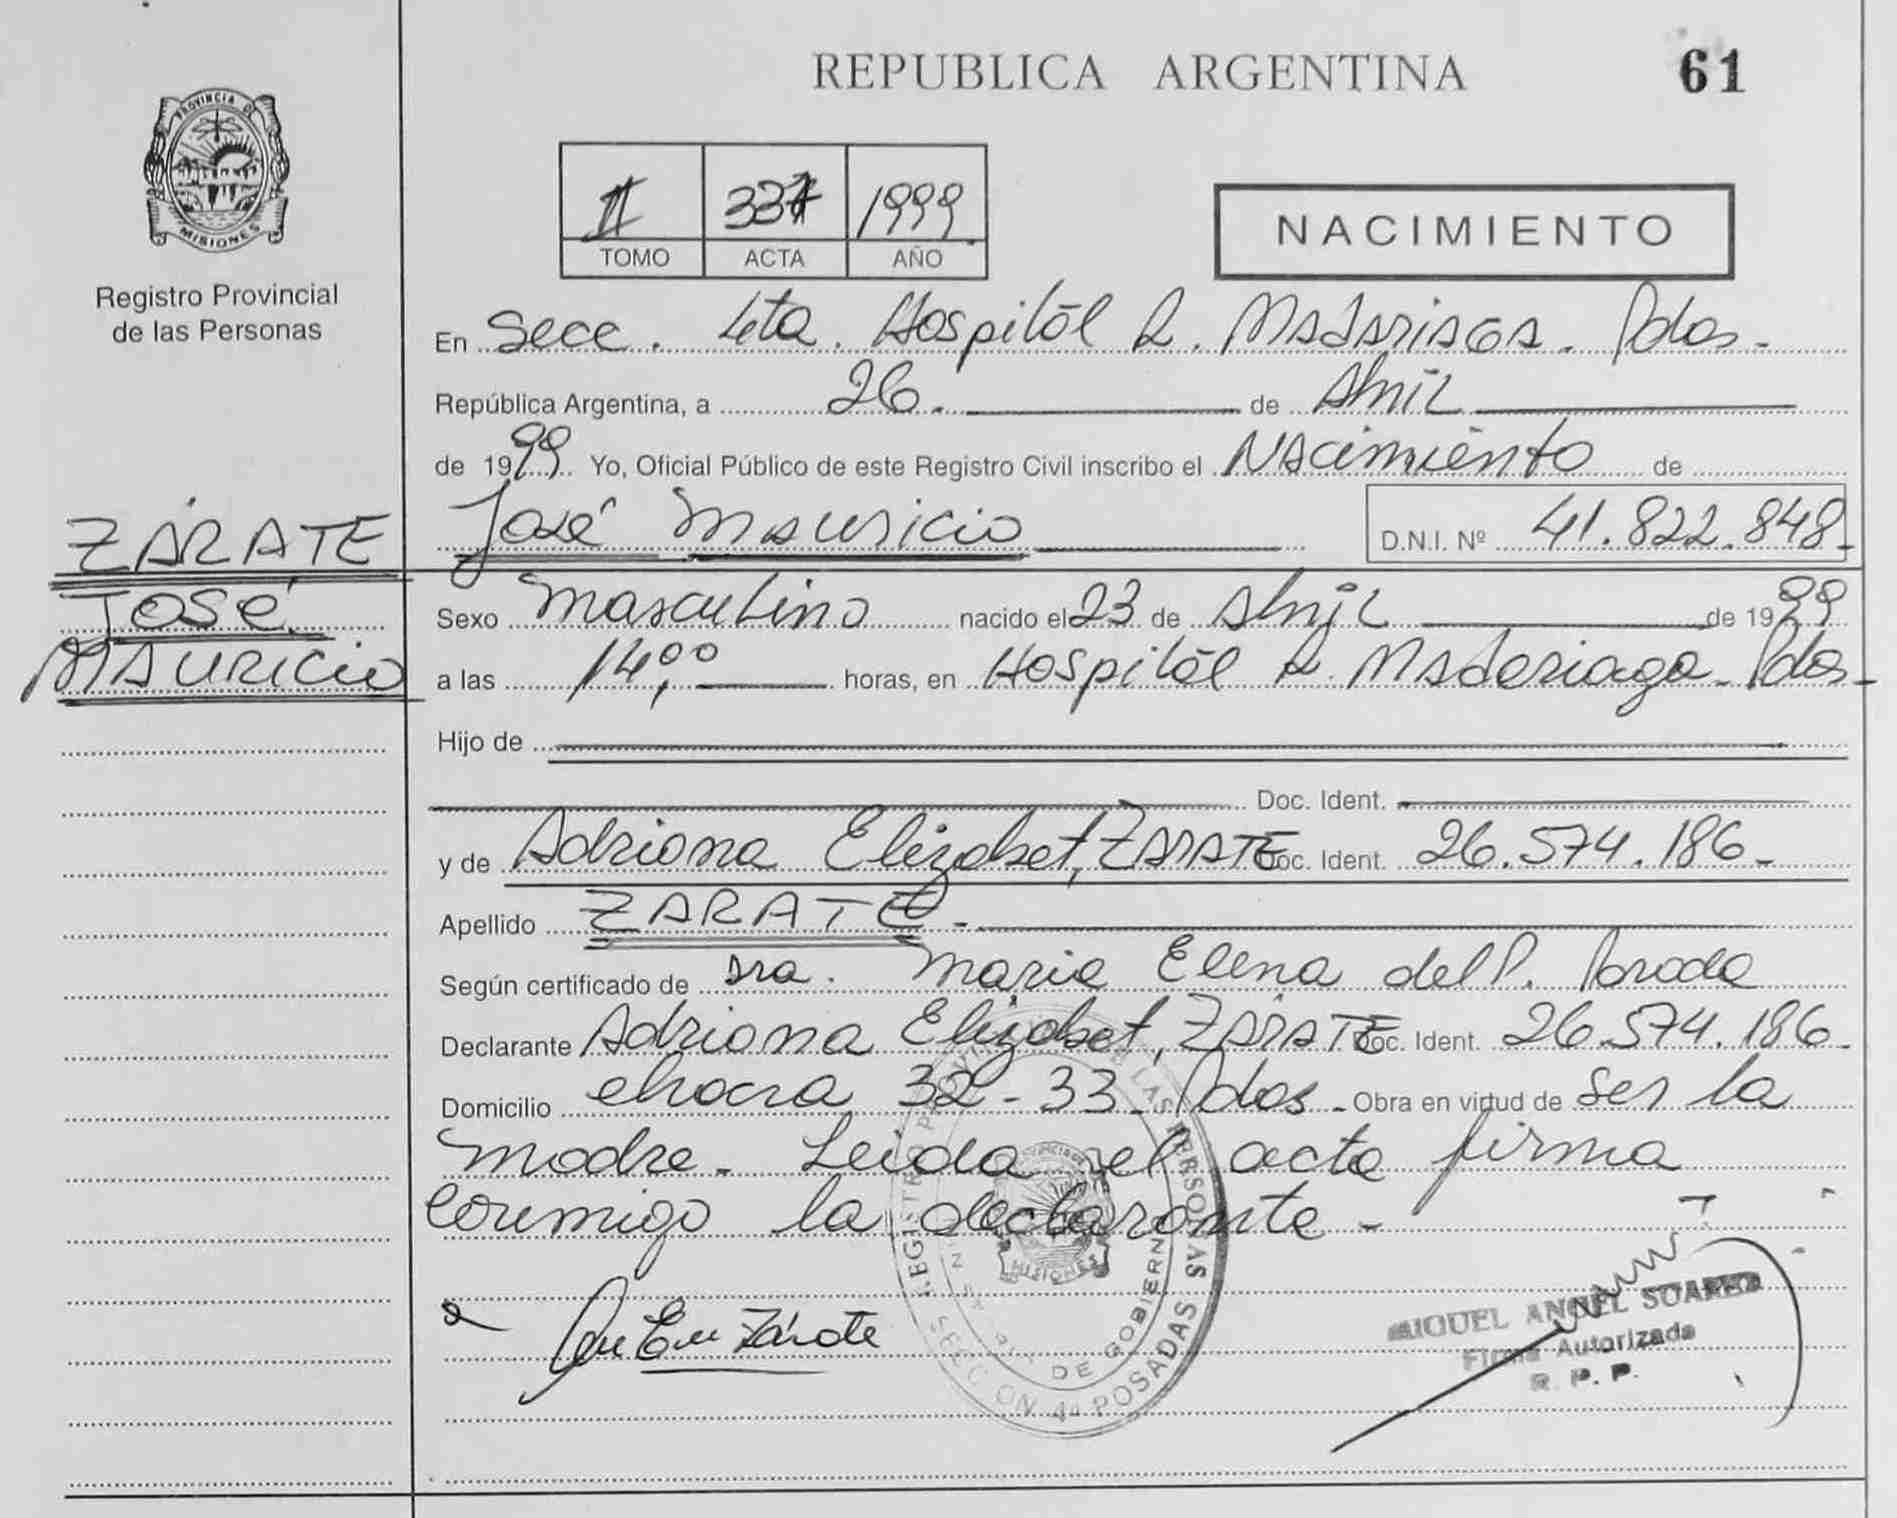 REPUBLICA ARGENTINA 61
PROVINCIA DE
MISIONES
Registro Provincial
de las Personas
II 337 1999
TOMO ACTA AÑO
NACIMIENTO
En Secc. 4ta. Hospital R. Madariaga. Pdas.
República Argentina, a 26. de Abril
de 1999 Yo, Oficial Público de este Registro Civil inscribo el Nacimiento de
José Mauricio D.N.I. Nº 41.822.848
ZÁRATE
José
Mauricio
Sexo Masculino nacido el 23 de Abril de 1999
a las 14,00 horas, en Hospital R. Madariaga. Pdas.
Hijo de
Doc. Ident.
y de Adriana Elizabet, ZARATE Doc. Ident. 26.574.186
Apellido ZARATE
Según certificado de Sra. Maria Elena del P.
Declarante Adriana Elizabet, ZÁRATE Doc. Ident. 26.574.186
Domicilio chacra 32-33 Pdas. Obra en virtud de ser la
madre. Leida el acta firma
conmigo la declarante.
Zárate
REGISTRO PROVINCIAL DE LAS PERSONAS
DE GOBIERNO
MISIONES
SECCION 4ª POSADAS
MIGUEL ANGEL SUAREZ
Firma Autorizada
R. P. P.